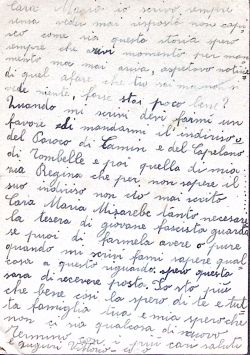 Cara Maria io scrivo sempre
senza vedere mai risposte non capi-
sco come sia questa storia spero
sempre che arivi momento per mo-
mento ma mai ariva, aspetavo notizie
di quel afare che tu sai ma non si
vede niente, forse stai poco bene?
Quando mi scrivi devi farmi un
favore di mandarmi il indiriso
del Paroco di Camin e del Capelano
di Tombelle e poi quella di mia
zia Regina che per non sapere il
suo indiriso non ciò mai scrito
Cara Maria Misarebe tanto necesare
la tesera di giovane fascista guarda
se puoi di farmela avere o pure
quando mi scrivi fami sapere qual
cosa a questo riguardo, spero questa
sara di ricevere posta. Io sto più
che bene cosi la spero di te e tut-
ta famiglia tua e mia spero che
non ci sia qualcosa di nuovo
Termino i più cari saluti
e auguri